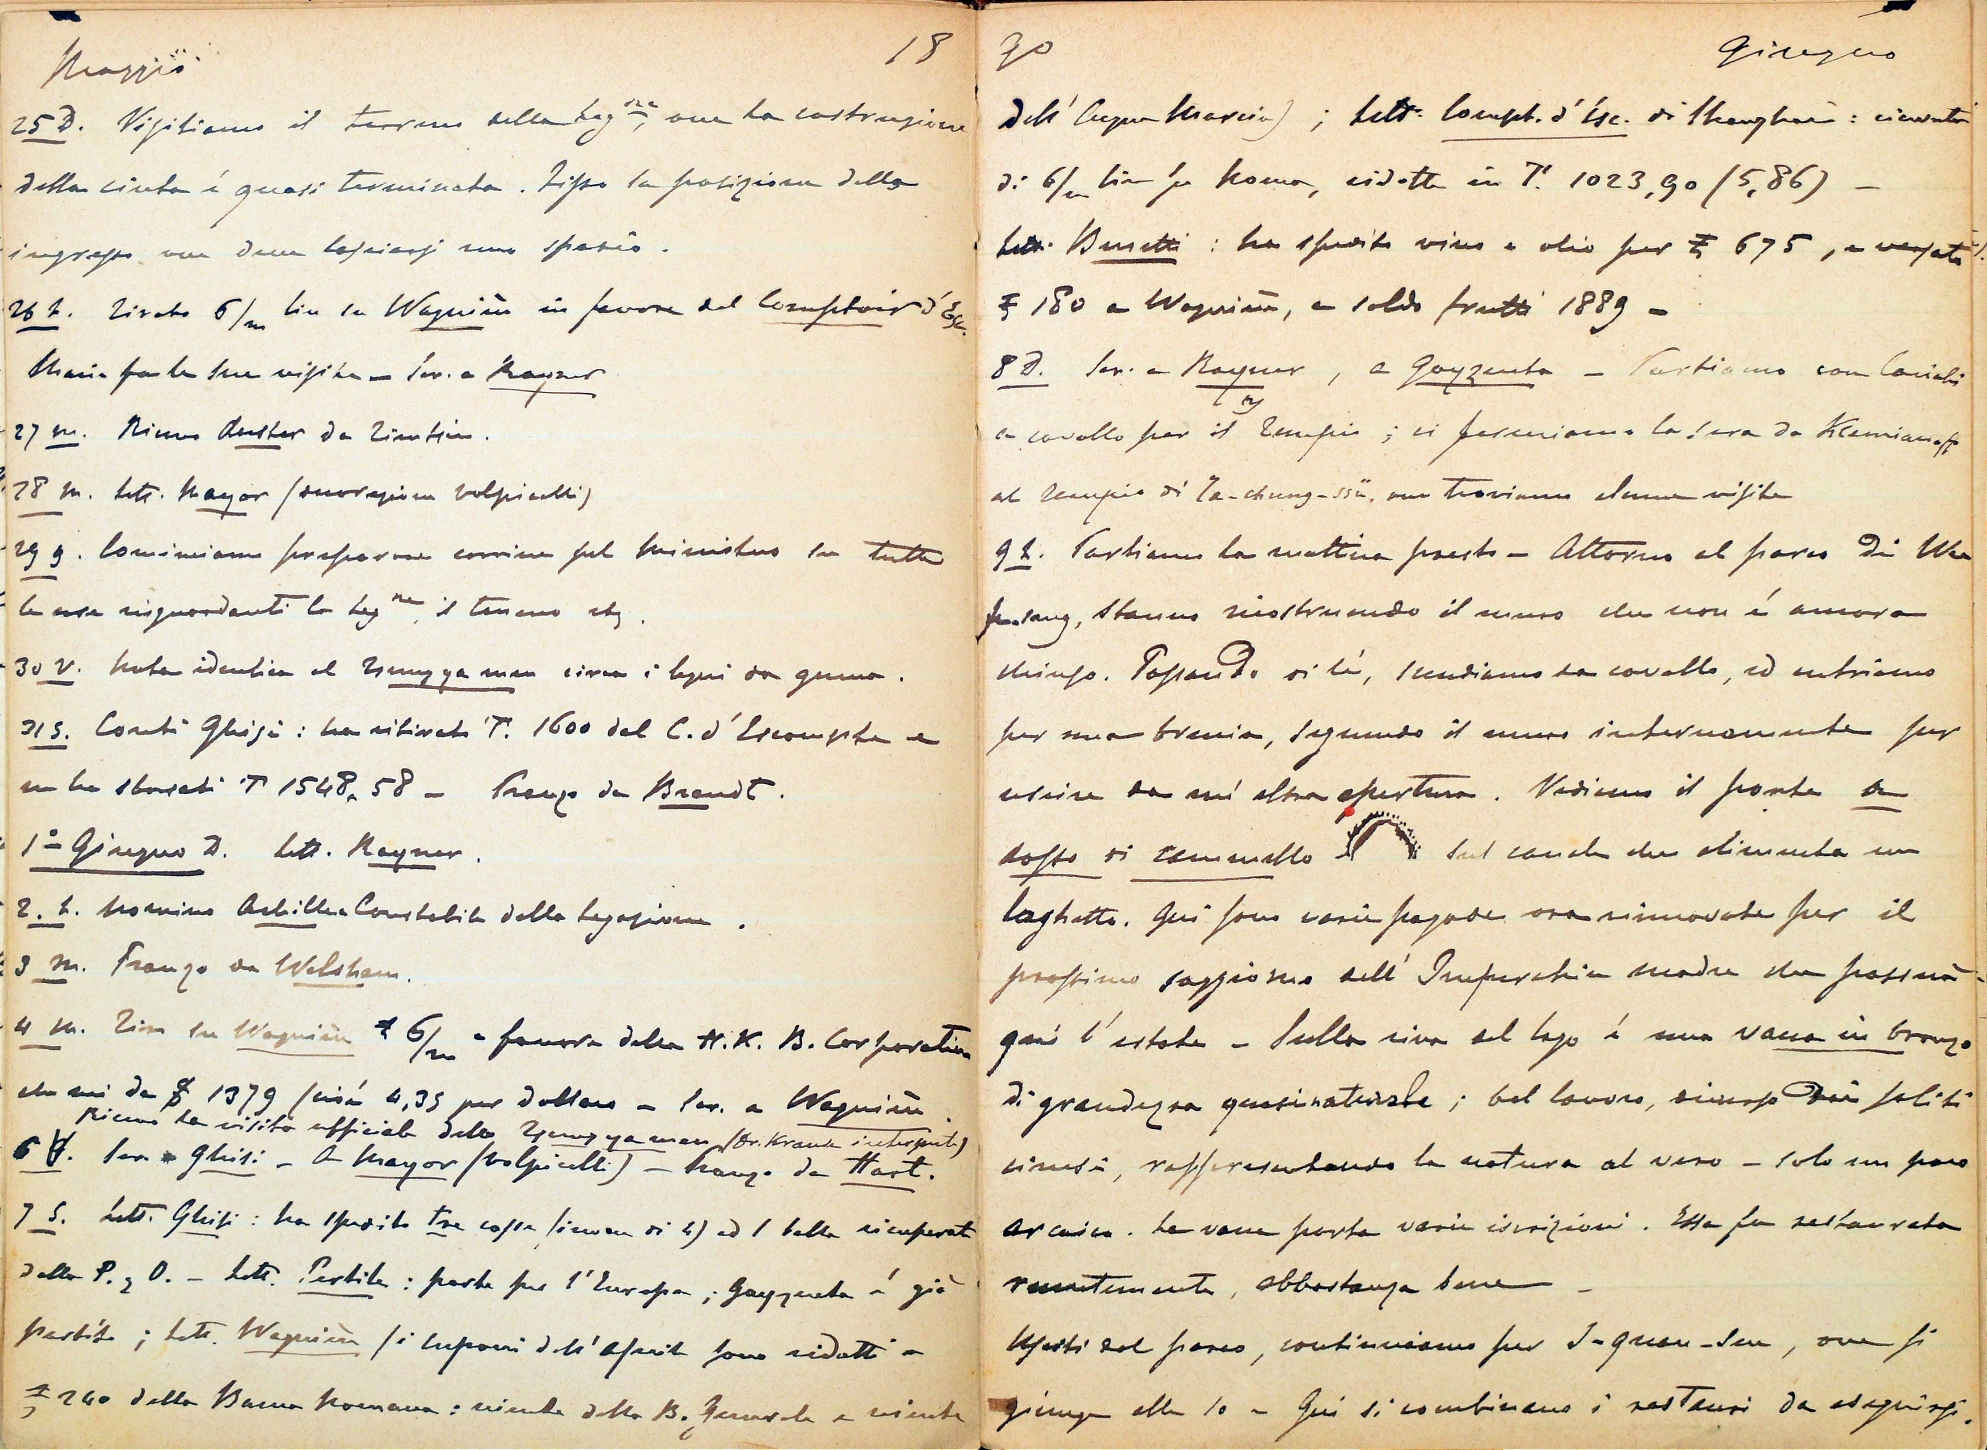 Maggio 18
25 D. Visitiamo il terreno della Leg.ne, ove la costruzione
della cinta è quasi terminata. Fisso la posizione dello
ingresso ove deve lasciarsi uno spazio.
26 L. Tirato 6/m lire su Wagnière in favore del Comptoir d'Esc.
Maria fa le sue visite – Scr. a Rayner
27 M. Riceve da Tientsin.
28 M. Lett. Mayor (onorazione Volpicelli)
29 G. Cominciamo preparare corriere pel Ministero su tutte
le cose risguardanti la Leg.ne, il terreno etc.
30 V. Nota identica al Tsungyamen circa i legni da guerra.
31 S. Conti Ghisi: ha ritirato T. 1600 dal C. d'Escompte e
ne ha sborsati T 1548,58 – Pranzo da Brandt.
1º Giugno D. Lett. Rayner.
2. L. Nomino Achille Constabile della Legazione.
3 M. Pranzo da Walsham.
4 M. Tiro su Wagnière £ 6/m a favore della H.K.B. Corporation
che mi da $ 1379 (cioè 4,35 per dollaro – Scr. a Wagnière.
Riceve la visita ufficiale dello Tsungyamen (Dr. interprete)
6 V. Scr. a Ghisi – A Mayor (Volpicelli) – Pranzo da Hart.
7 S. Lett. Ghisi: ha spedito tre casse (invece di 4) ed 1 balla ricuperate
dalla P. & O. – Lett. Pertile: parte per l'Europa; Gayzueta è già
partito; Lett. Wagnière (i cuponi dell'Aprile sono ridotti a
£ 240 della Banca Romana: niente della B. Generale e niente
30 Giugno
dell'Acqua Marcia); Lett. Compt. d'Esc. di Shanghai: ricevuta
di 6/m lire su Roma, ridotte in T. 1023,90 (5,86) –
Lett. Busetti: ha spedito vino e olio per £ 675, e versato
£ 180 a Wagnière, a saldo frutti 1889 –
8 D. Scr. a Rayner, a Gayzueta – Partiamo con
a cavallo per il Tempio; ci fermiamo la sera da
al tempio di Ta-chung-ssü, ove troviamo alcune visite
9 L. Partiamo la mattina presto – Attorno al parco di Wan
shu-sang, stanno ricostruendo il muro che non è ancora
chiuso. Passando di là, scendiamo da cavallo, ed entriamo
per una breccia, seguendo il muro internamente per
uscire da un'altra apertura. Vediamo il ponte a
dosso di cammello sul canale che alimenta un
laghetto. Qui sono varie pagode ora rinnovate per il
prossimo soggiorno dell'Imperatrice madre che passerà
quì l'estate – Sulla riva del lago è una vacca in bronzo
di grandezza quasi naturale; bel lavoro, diverso dai soliti
cinesi, rappresentando la natura al vero – solo un poco
arcaico. La vacca porta varie iscrizioni. Essa fu restaurata
recentemente, abbastanza bene –
Usciti dal parco, continuiamo per S-quan-sen, ove si
giunge alle 10 – Qui si combinano i restauri da eseguirsi.